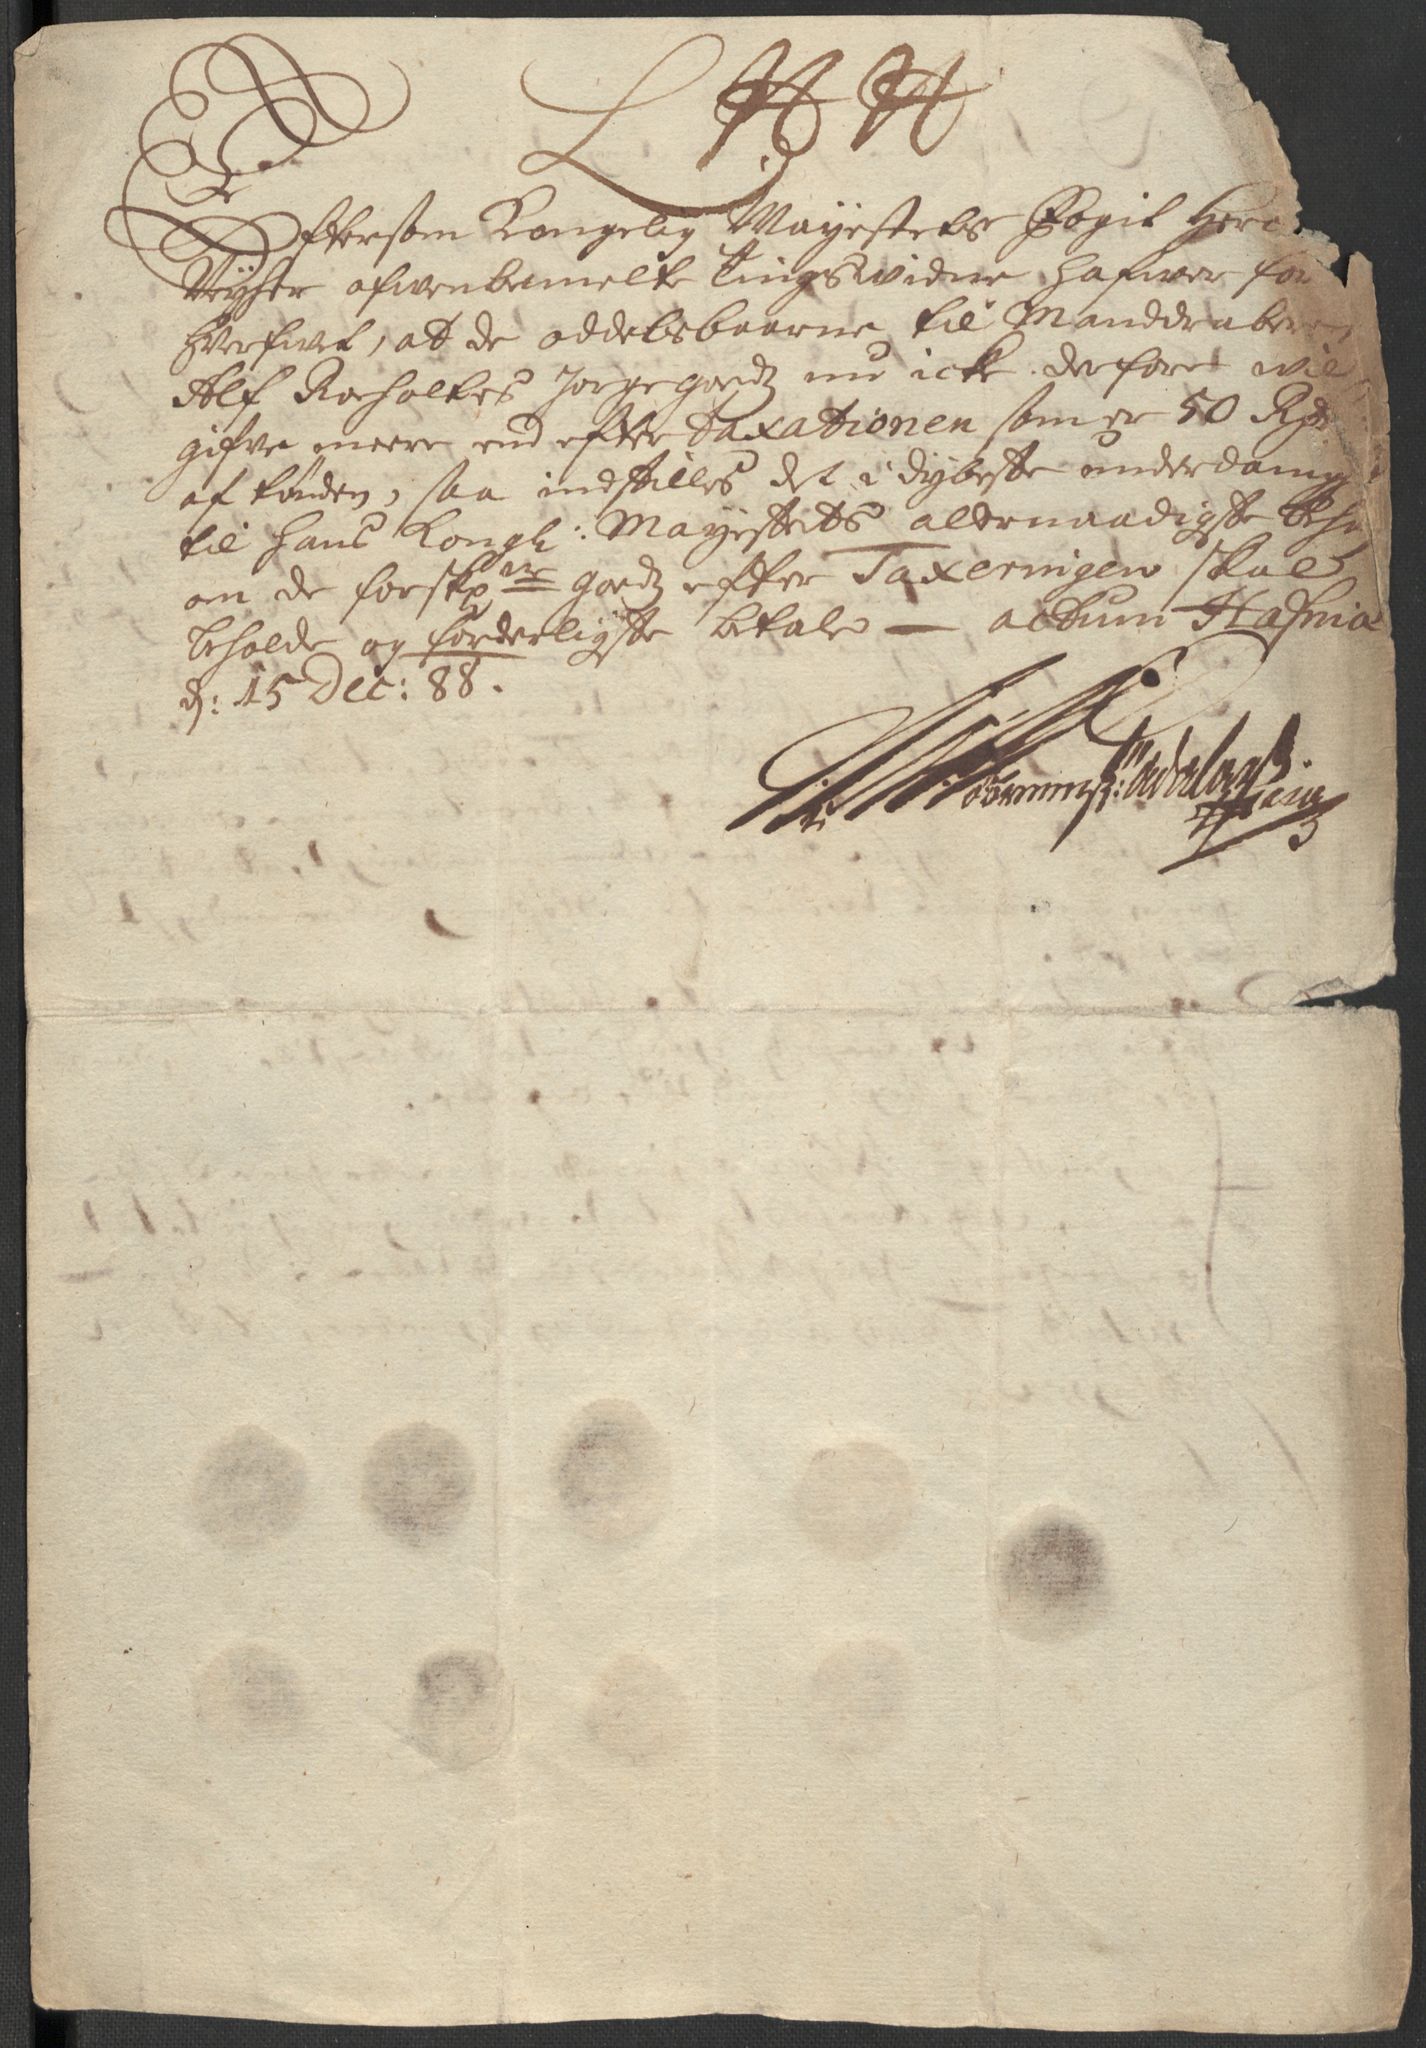 Efftersom Kongelig Mayestets Fogit Her
ofvenbemelte Tingswidne hafver for
hverfvet, at de oddelsbaarne til Manddraberen
Alf Rocholtes Jorgegodz nu icke derfore wil
gifve meere end efter taxationen som er 50 Rdr
af tønden, saa indstilles det i dybeste underdanig
til Hans Kongl: Mayestets allernaadigste beh
om de forskrne godz efter Taxeringen skal
beholde og forderligste betale — actum Hafniæ
d: 15 Dec: 88.